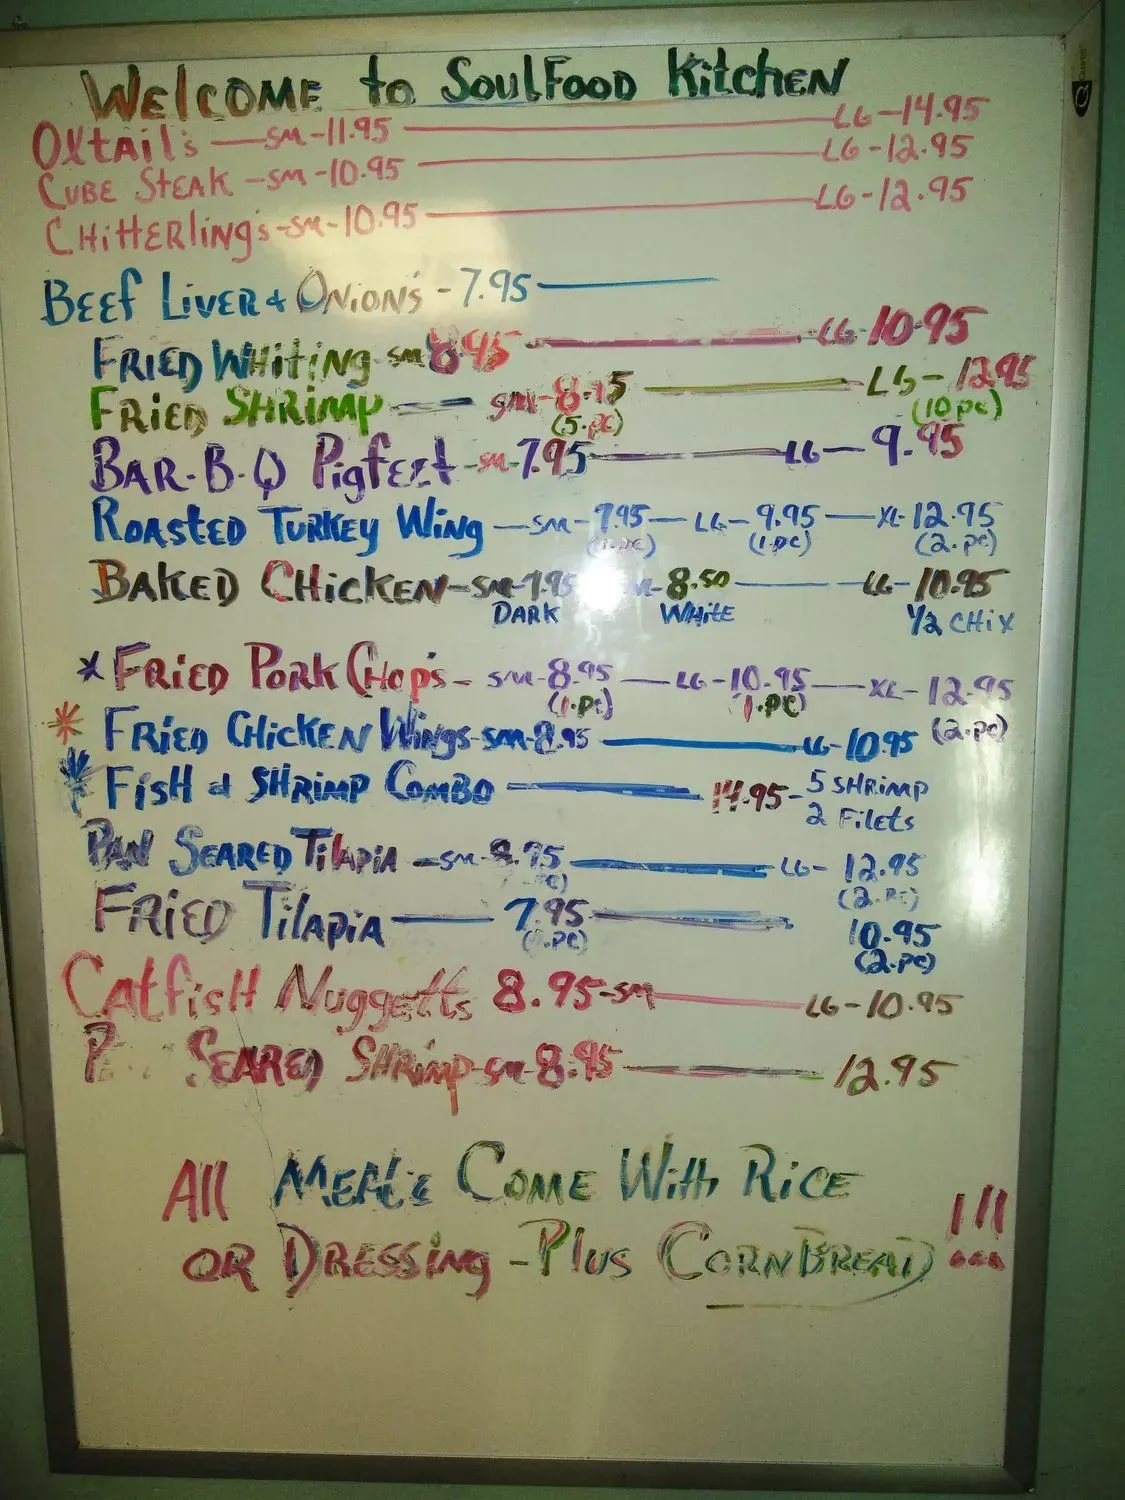 WELCOME to SOULFOOD KitCHEN
OXtAil's — SM-11.95 — LG-14.95
CUBE STEAK - SM-10.95 — LG-12.95
CHittERling's - SM-10.95 — LG-12.95
BEEf LiVER & ONiON'S - 7.95 —
FRiED WHitiNG - SM 8.95 — LG-10.95
FRiED SHRiMP — SM-8.95 — LG-12.95
(5.pc) (10 pc)
BAR-B-Q PigfEEt - SM-7.95 — LG-9.95
ROASTED TURKEY WiNg — SM-7.95 — LG-9.95 — XL-12.95
(1.pc) (1.pc) (2.pc)
BAKED CHiCKEN - SM-7.95 8.50 — LG-10.95
DARK WHitE 1/2 CHiX
* FRiED PORK CHop's - SM-8.95 — LG-10.95 — XL-12.95
(1.pc) (1.pc) (2.pc)
* FRiED CHiCKEN WiNgs - SM-8.95 — LG-10.95
* FisH & SHRiMP COMBO — 14.95 - 5 SHRiMP
2 FilEts
PAN SEARED TilApiA - SM-8.95 — LG-12.95
(2.pc)
FRiED TilApiA — 7.95 — 10.95
(1.pc) (2.pc)
CAtfisH NuggEtts 8.95-SM — LG-10.95
SEARED SHRiMp - SM-8.95 — 12.95
All MEAl's COME With RiCE
OR DRESSiNg - Plus CORNBREAD !!!